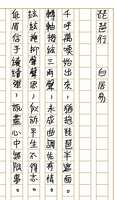 琵琶行 白居易
千呼萬喚始出來,猶抱琵琶半遮面。
轉軸撥絃三兩聲,未成曲調先有情。
絃絃掩抑聲聲思,似訴平生不得志。
低眉信手續續彈,說盡心中無限事。